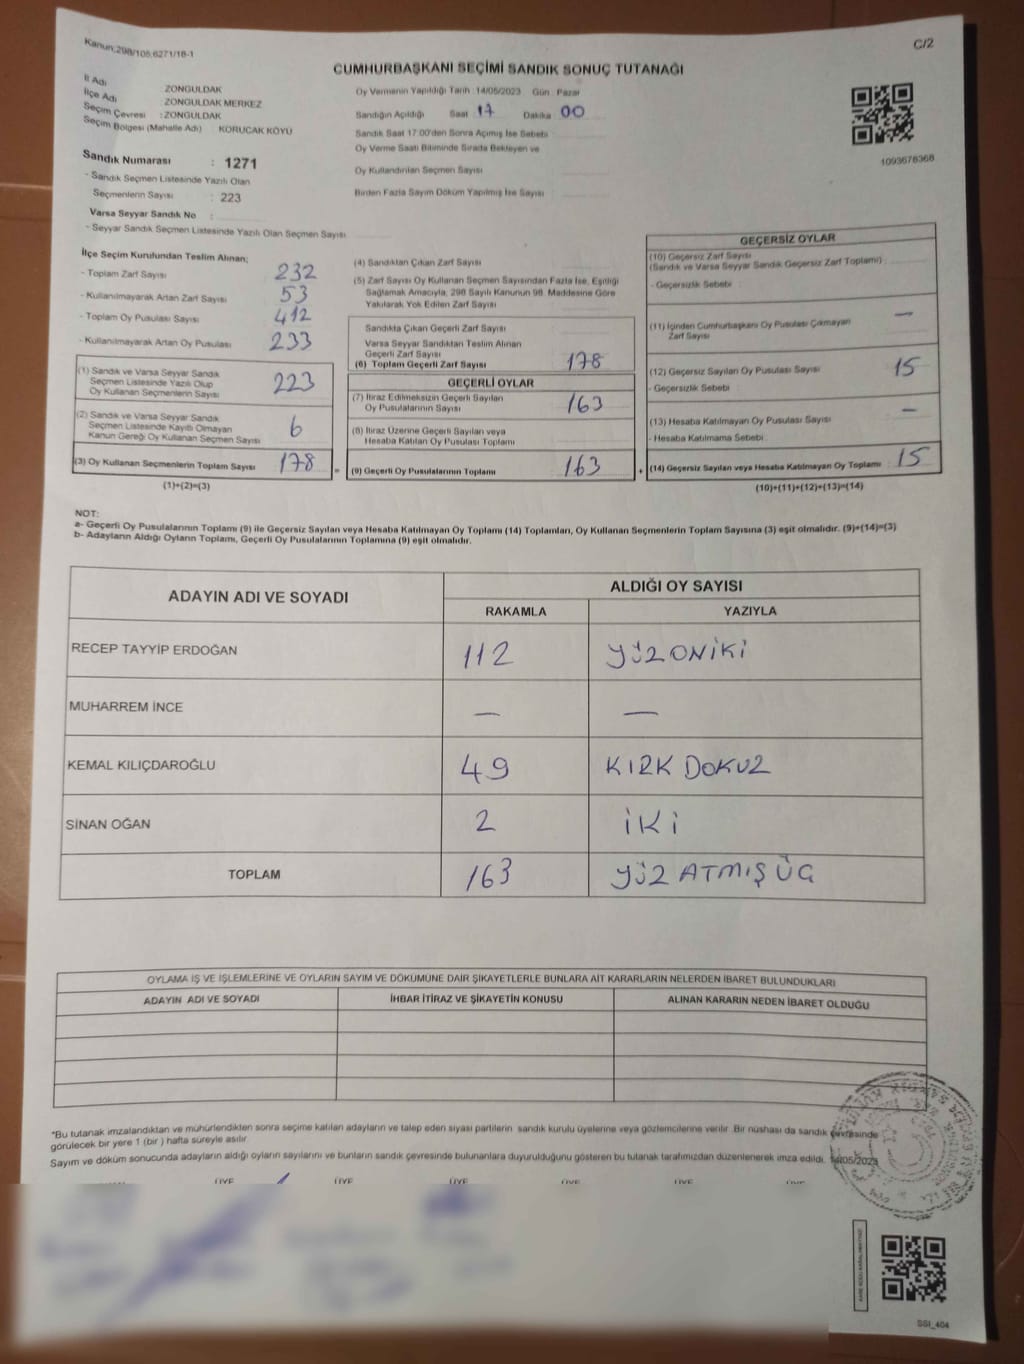 Kanun:298/105;6271/18-1
C/2
CUMHURBAŞKANI SEÇİMİ SANDIK SONUÇ TUTANAĞI
İl Adı ZONGULDAK
İlçe Adı ZONGULDAK MERKEZ
Seçim Çevresi : ZONGULDAK
Seçim Bölgesi (Mahalle Adı) : KORUCAK KÖYÜ
Oy Vermenin Yapıldığı Tarih : 14/05/2023 Gün : Pazar
Sandığın Açıldığı Saat 17 Dakika 00
Sandık Saat 17:00'den Sonra Açımış İse Sebebi
Oy Verme Saati Bitiminde Sırada Bekleyen ve
Oy Kullandırılan Seçmen Sayısı
Birden Fazla Sayım Döküm Yapılmış İse Sayısı
1093678368
Sandık Numarası : 1271
- Sandık Seçmen Listesinde Yazılı Olan
Seçmenlerin Sayısı : 223
Varsa Seyyar Sandık No :
- Seyyar Sandık Seçmen Listesinde Yazılı Olan Seçmen Sayısı
İlçe Seçim Kurulundan Teslim Alınan;
- Toplam Zarf Sayısı 232
- Kullanılmayarak Artan Zarf Sayısı 53
- Toplam Oy Pusulası Sayısı 412
- Kullanılmayarak Artan Oy Pusulası 233
(1) Sandık ve Varsa Seyyar Sandık
Seçmen Listesinde Yazılı Olup
Oy Kullanan Seçmenlerin Sayısı 223
(2) Sandık ve Varsa Seyyar Sandık
Seçmen Listesinde Kayıtlı Olmayan
Kanun Gereği Oy Kullanan Seçmen Sayısı 6
(3) Oy Kullanan Seçmenlerin Toplam Sayısı 178 =
(1)+(2)=(3)
(4) Sandıktan Çıkan Zarf Sayısı
(5) Zarf Sayısı Oy Kullanan Seçmen Sayısından Fazla İse, Eşitliği
Sağlamak Amacıyla, 298 Sayılı Kanunun 98. Maddesine Göre
Yakılarak Yok Edilen Zarf Sayısı
Sandıkta Çıkan Geçerli Zarf Sayısı
Varsa Seyyar Sandıktan Teslim Alınan
Geçerli Zarf Sayısı
(6) Toplam Geçerli Zarf Sayısı 178
GEÇERLİ OYLAR
(7) İtiraz Edilmeksizin Geçerli Sayılan
Oy Pusulalarının Sayısı 163
(8) İtiraz Üzerine Geçerli Sayılan veya
Hesaba Katılan Oy Pusulası Toplamı
(9) Geçerli Oy Pusulalarının Toplamı 163 +
GEÇERSİZ OYLAR
(10) Geçersiz Zarf Sayısı
(Sandık ve Varsa Seyyar Sandık Geçersiz Zarf Toplamı) :
- Geçersizlik Sebebi :
(11) İçinden Cumhurbaşkanı Oy Pusulası Çıkmayan
Zarf Sayısı —
(12) Geçersiz Sayılan Oy Pusulası Sayısı 15
- Geçersizlik Sebebi :
(13) Hesaba Katılmayan Oy Pusulası Sayısı —
- Hesaba Katılmama Sebebi :
(14) Geçersiz Sayılan veya Hesaba Katılmayan Oy Toplamı : 15
(10)+(11)+(12)+(13)=(14)
NOT:
a- Geçerli Oy Pusulalarının Toplamı (9) ile Geçersiz Sayılan veya Hesaba Katılmayan Oy Toplamı (14) Toplamları, Oy Kullanan Seçmenlerin Toplam Sayısına (3) eşit olmalıdır. (9)+(14)=(3)
b- Adayların Aldığı Oyların Toplamı, Geçerli Oy Pusulalarının Toplamına (9) eşit olmalıdır.
ADAYIN ADI VE SOYADI ALDIĞI OY SAYISI
RAKAMLA YAZIYLA
RECEP TAYYİP ERDOĞAN 112 YÜZONİKİ
MUHARREM İNCE — —
KEMAL KILIÇDAROĞLU 49 KIRK DOKUZ
SİNAN OĞAN 2 İKİ
TOPLAM 163 YÜZ ATMIŞ ÜÇ
OYLAMA İŞ VE İŞLEMLERİNE VE OYLARIN SAYIM VE DÖKÜMÜNE DAİR ŞİKAYETLERLE BUNLARA AİT KARARLARIN NELERDEN İBARET BULUNDUKLARI
ADAYIN ADI VE SOYADI İHBAR İTİRAZ VE ŞİKAYETİN KONUSU ALINAN KARARIN NEDEN İBARET OLDUĞU
*Bu tutanak imzalandıktan ve mühürlendikten sonra seçime katılan adayların ve talep eden siyasi partilerin sandık kurulu üyelerine veya gözlemcilerine verilir. Bir nüshası da sandık çevresinde
görülecek bir yere 1 (bir ) hafta süreyle asılır.
Sayım ve döküm sonucunda adayların aldığı oyların sayılarını ve bunların sandık çevresinde bulunanlara duyurulduğunu gösteren bu tutanak tarafımızdan düzenlenerek imza edildi. 14/05/2023
ÜYE ÜYE ÜYE ÜYE ÜYE ÜYE
SSI_404